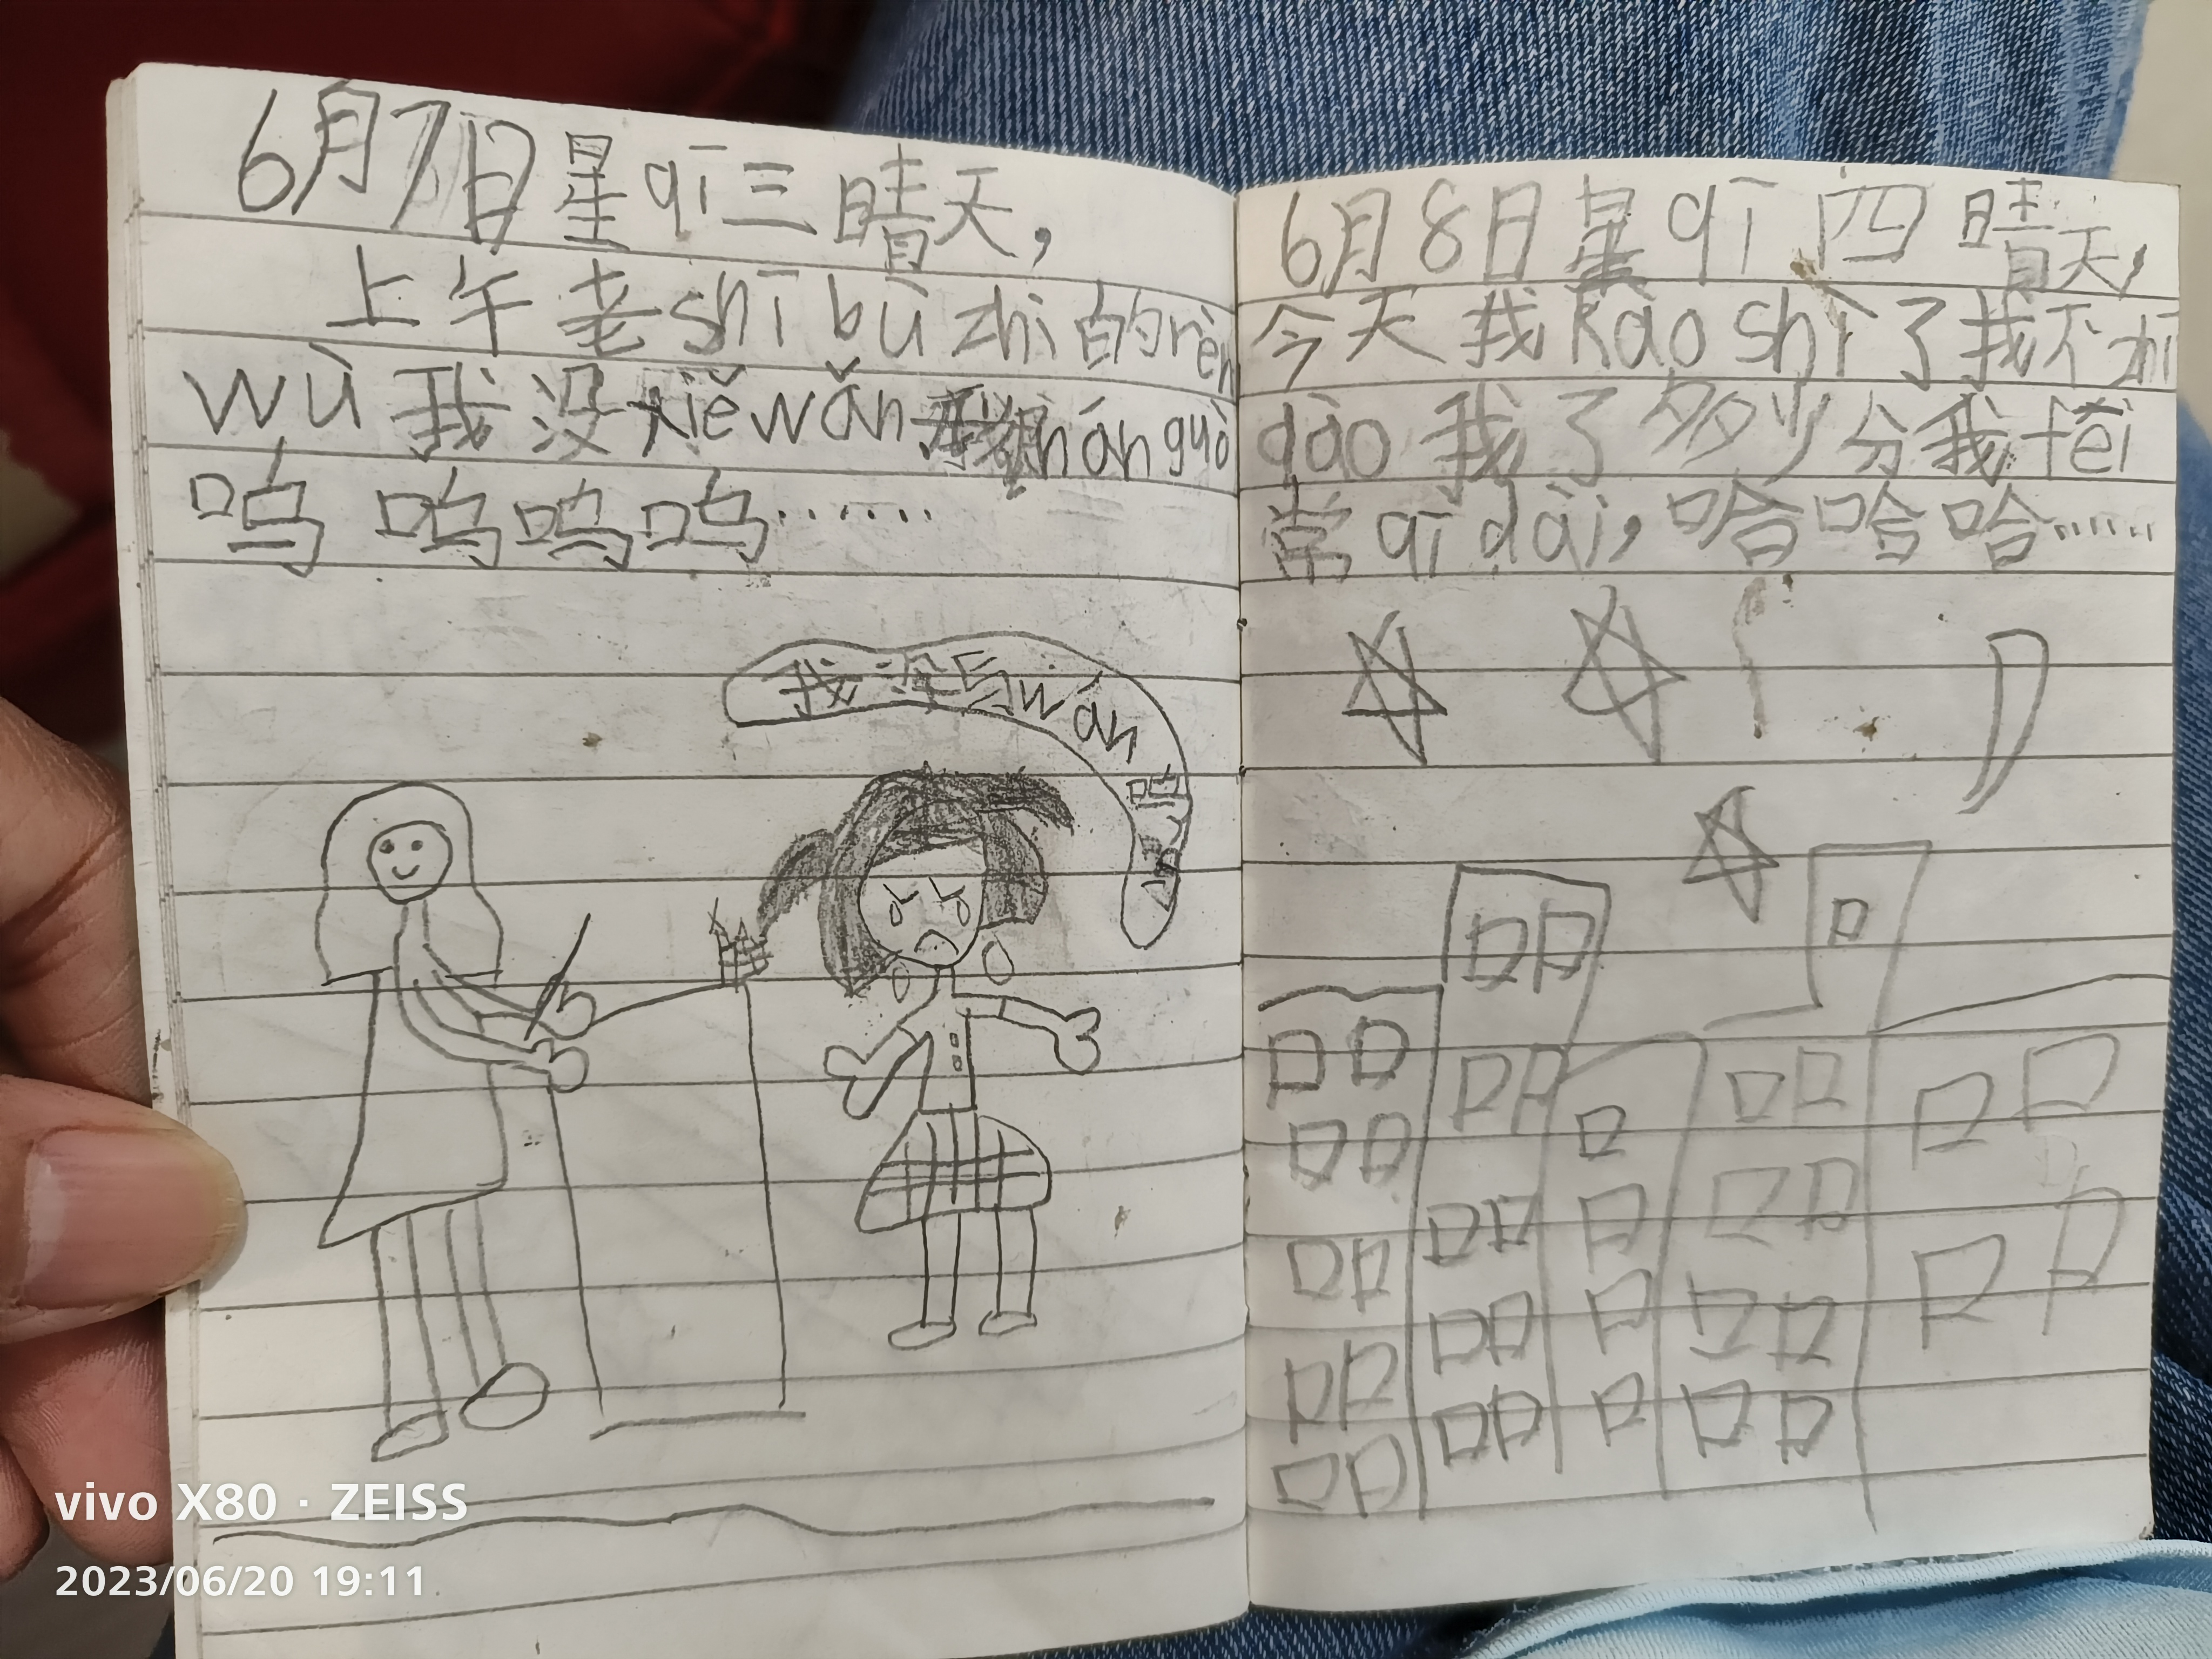 6月7日星qī三晴天,
上午老shī bù zhì的rèn
wù我没xiě wǎn我nán guò
呜呜呜呜……
我没写wán
呜
6月8日星qī四晴天,
今天我kǎo shì了我不zhī
dào我了多少分我fēi
常qī dài,哈哈哈……
vivo X80 · ZEISS
2023/06/20 19:11